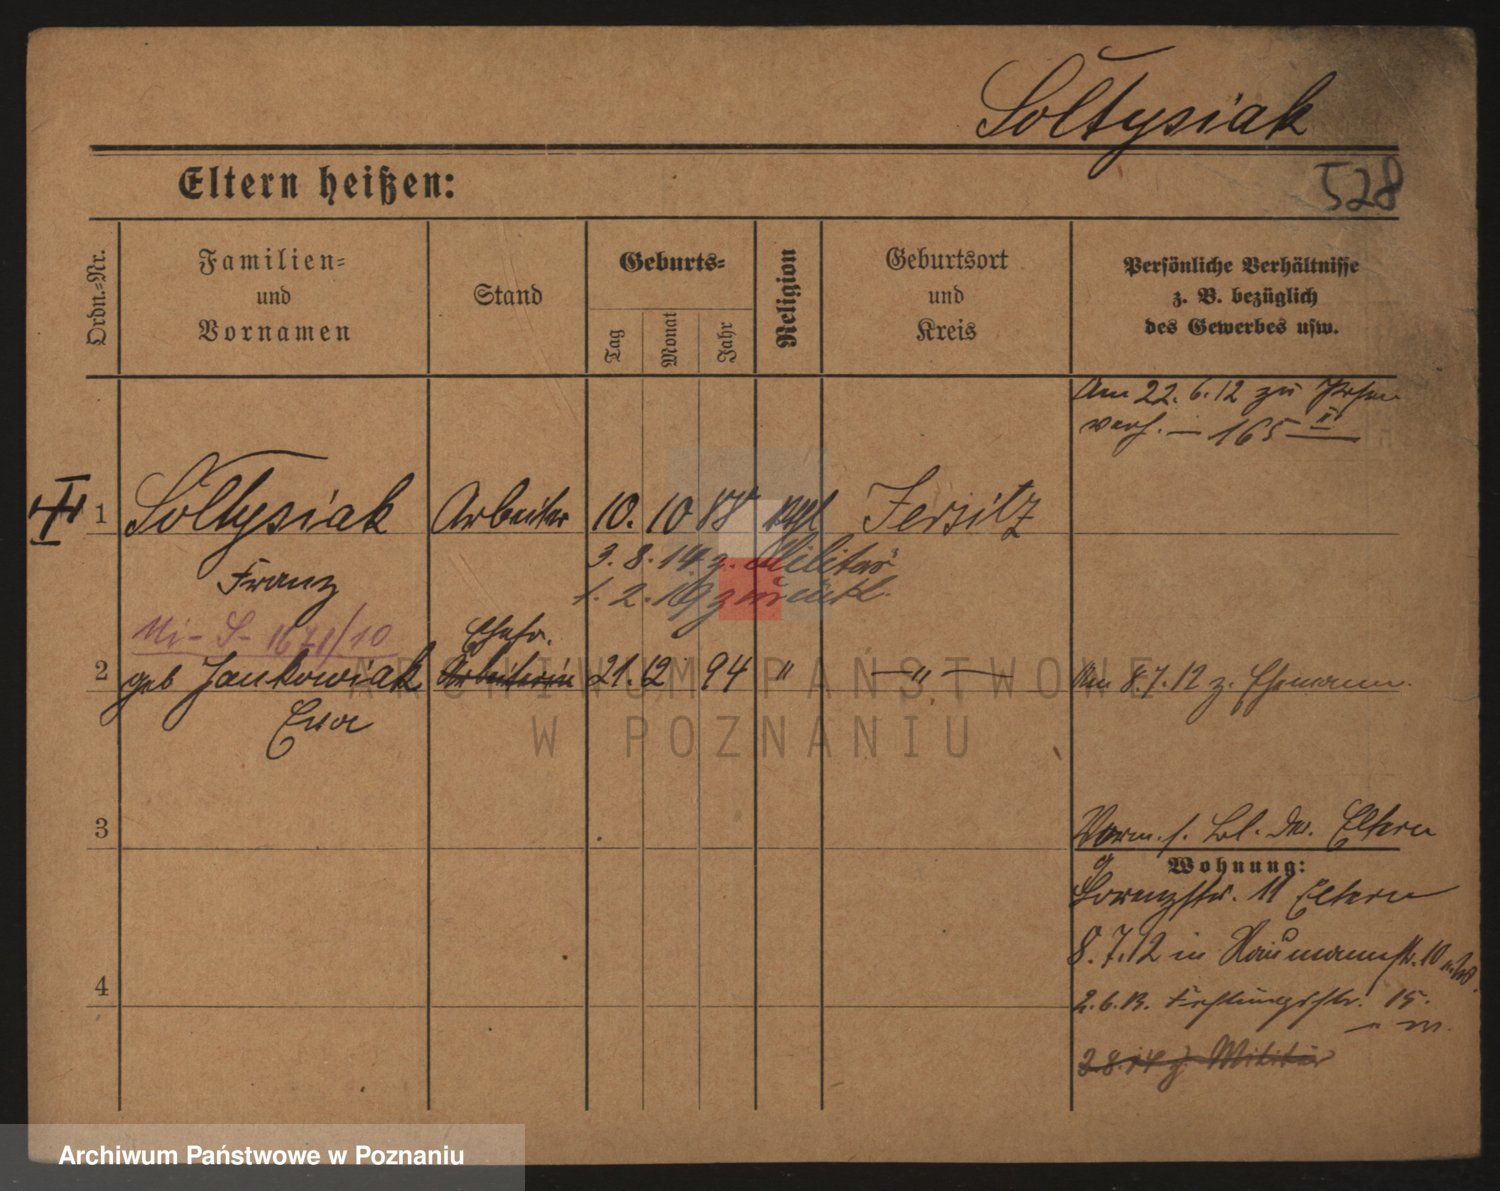 Sołtysiak
Eltern heißen:
528
Ordn.-Nr.
Familien-
und
Vornamen
Stand
Geburts-
Tag
Monat
Jahr
Religion
Geburtsort
und
Kreis
Persönliche Verhältnisse
z. B. bezüglich
des Gewerbes usw.
Am 22.6.12 zu Posen
verh. — 165 II
1 Sołtysiak Arbeiter 10. 10 88 Jersitz
Franz
3. 8. 14 z. Militär
1. 2. 19 zurück.
Mi- S- 1671/10
Ehefr.
2 geb Jankowiak Arbeiterin 21. 12 94 " — " — Am 8.7.12 z. Ehemann.
Eva
ARCHIWUM PAŃSTWOWE
W POZNANIU
3
Eltern
Wohnung:
11 Eltern
4
8.7.12 in Naumannstr. 10
2.6.13. Festungsstr. 15.
3.8.14 z. Militär
Archiwum Państwowe w Poznaniu